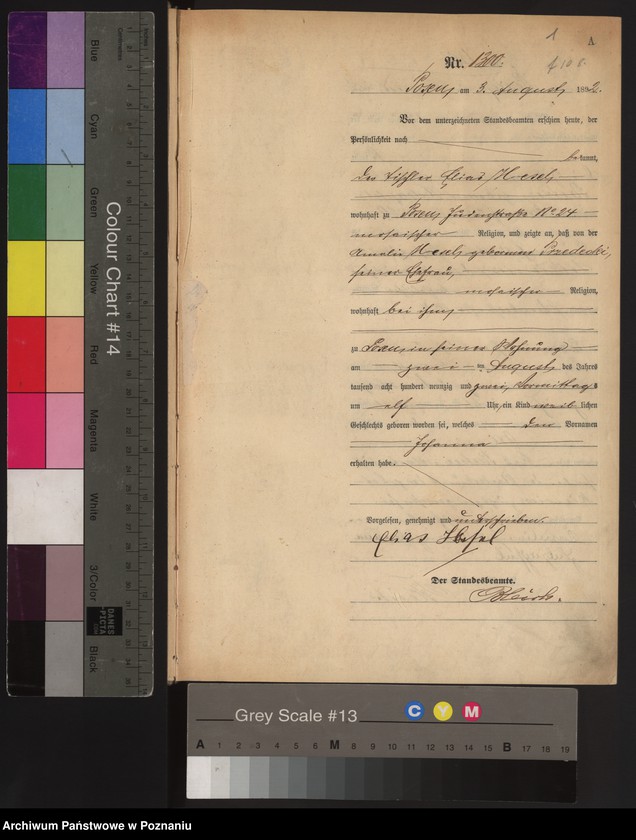 1 A
Nr. 1300.
Posen, am 3. August 1892.
Vor dem unterzeichneten Standesbeamten erschien heute, der
Persönlichkeit nach
bekannt,
der Tischler Elias Hesel,
wohnhaft zu Posen Judenstraße No 24
mosaischer Religion, und zeigte an, daß von der
Amalie Hesel geborenen
seiner Ehefrau,
mosaischer Religion,
wohnhaft bei ihm,
zu Posen in seiner Wohnung
am zwei ten August des Jahres
tausend acht hundert neunzig und zwei, Vormittags
um elf Uhr, ein Kind weiblichen
Geschlechts geboren worden sei, welches den Vornamen
Johanna
erhalten habe.
Vorgelesen, genehmigt und unterschrieben.
Elias Hesel
Der Standesbeamte.
Colour Chart #14
Blue
Cyan
Green
Yellow
Red
Magenta
White
3/Color
Black
Inches
Centimetres
DANES
-PICTA
.COM
Grey Scale #13
C Y M
A 1 2 3 4 5 6 M 8 9 10 11 12 13 14 15 B 17 18 19
Archiwum Państwowe w Poznaniu